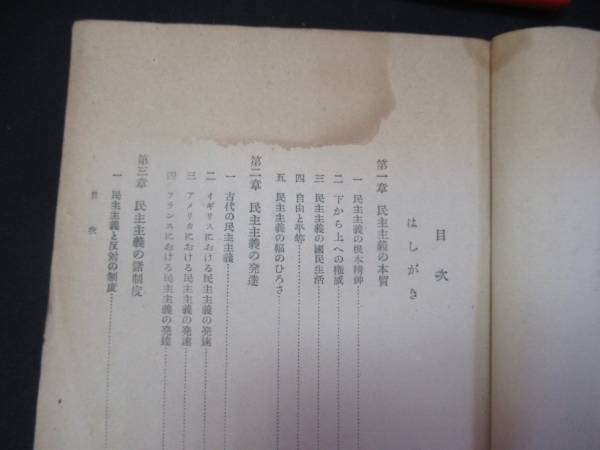 目次
はしがき
第一章 民主主義の本質
一 民主主義の根本精神
二 下から上への権威
三 民主主義の國民生活
四 自由と平等
五 民主主義の幅のひろさ
第二章 民主主義の発達
一 古代の民主主義
二 イギリスにおける民主主義の発達
三 アメリカにおける民主主義の発達
四 フランスにおける民主主義の発達
第三章 民主主義の諸制度
一 民主主義と反対の制度
目次